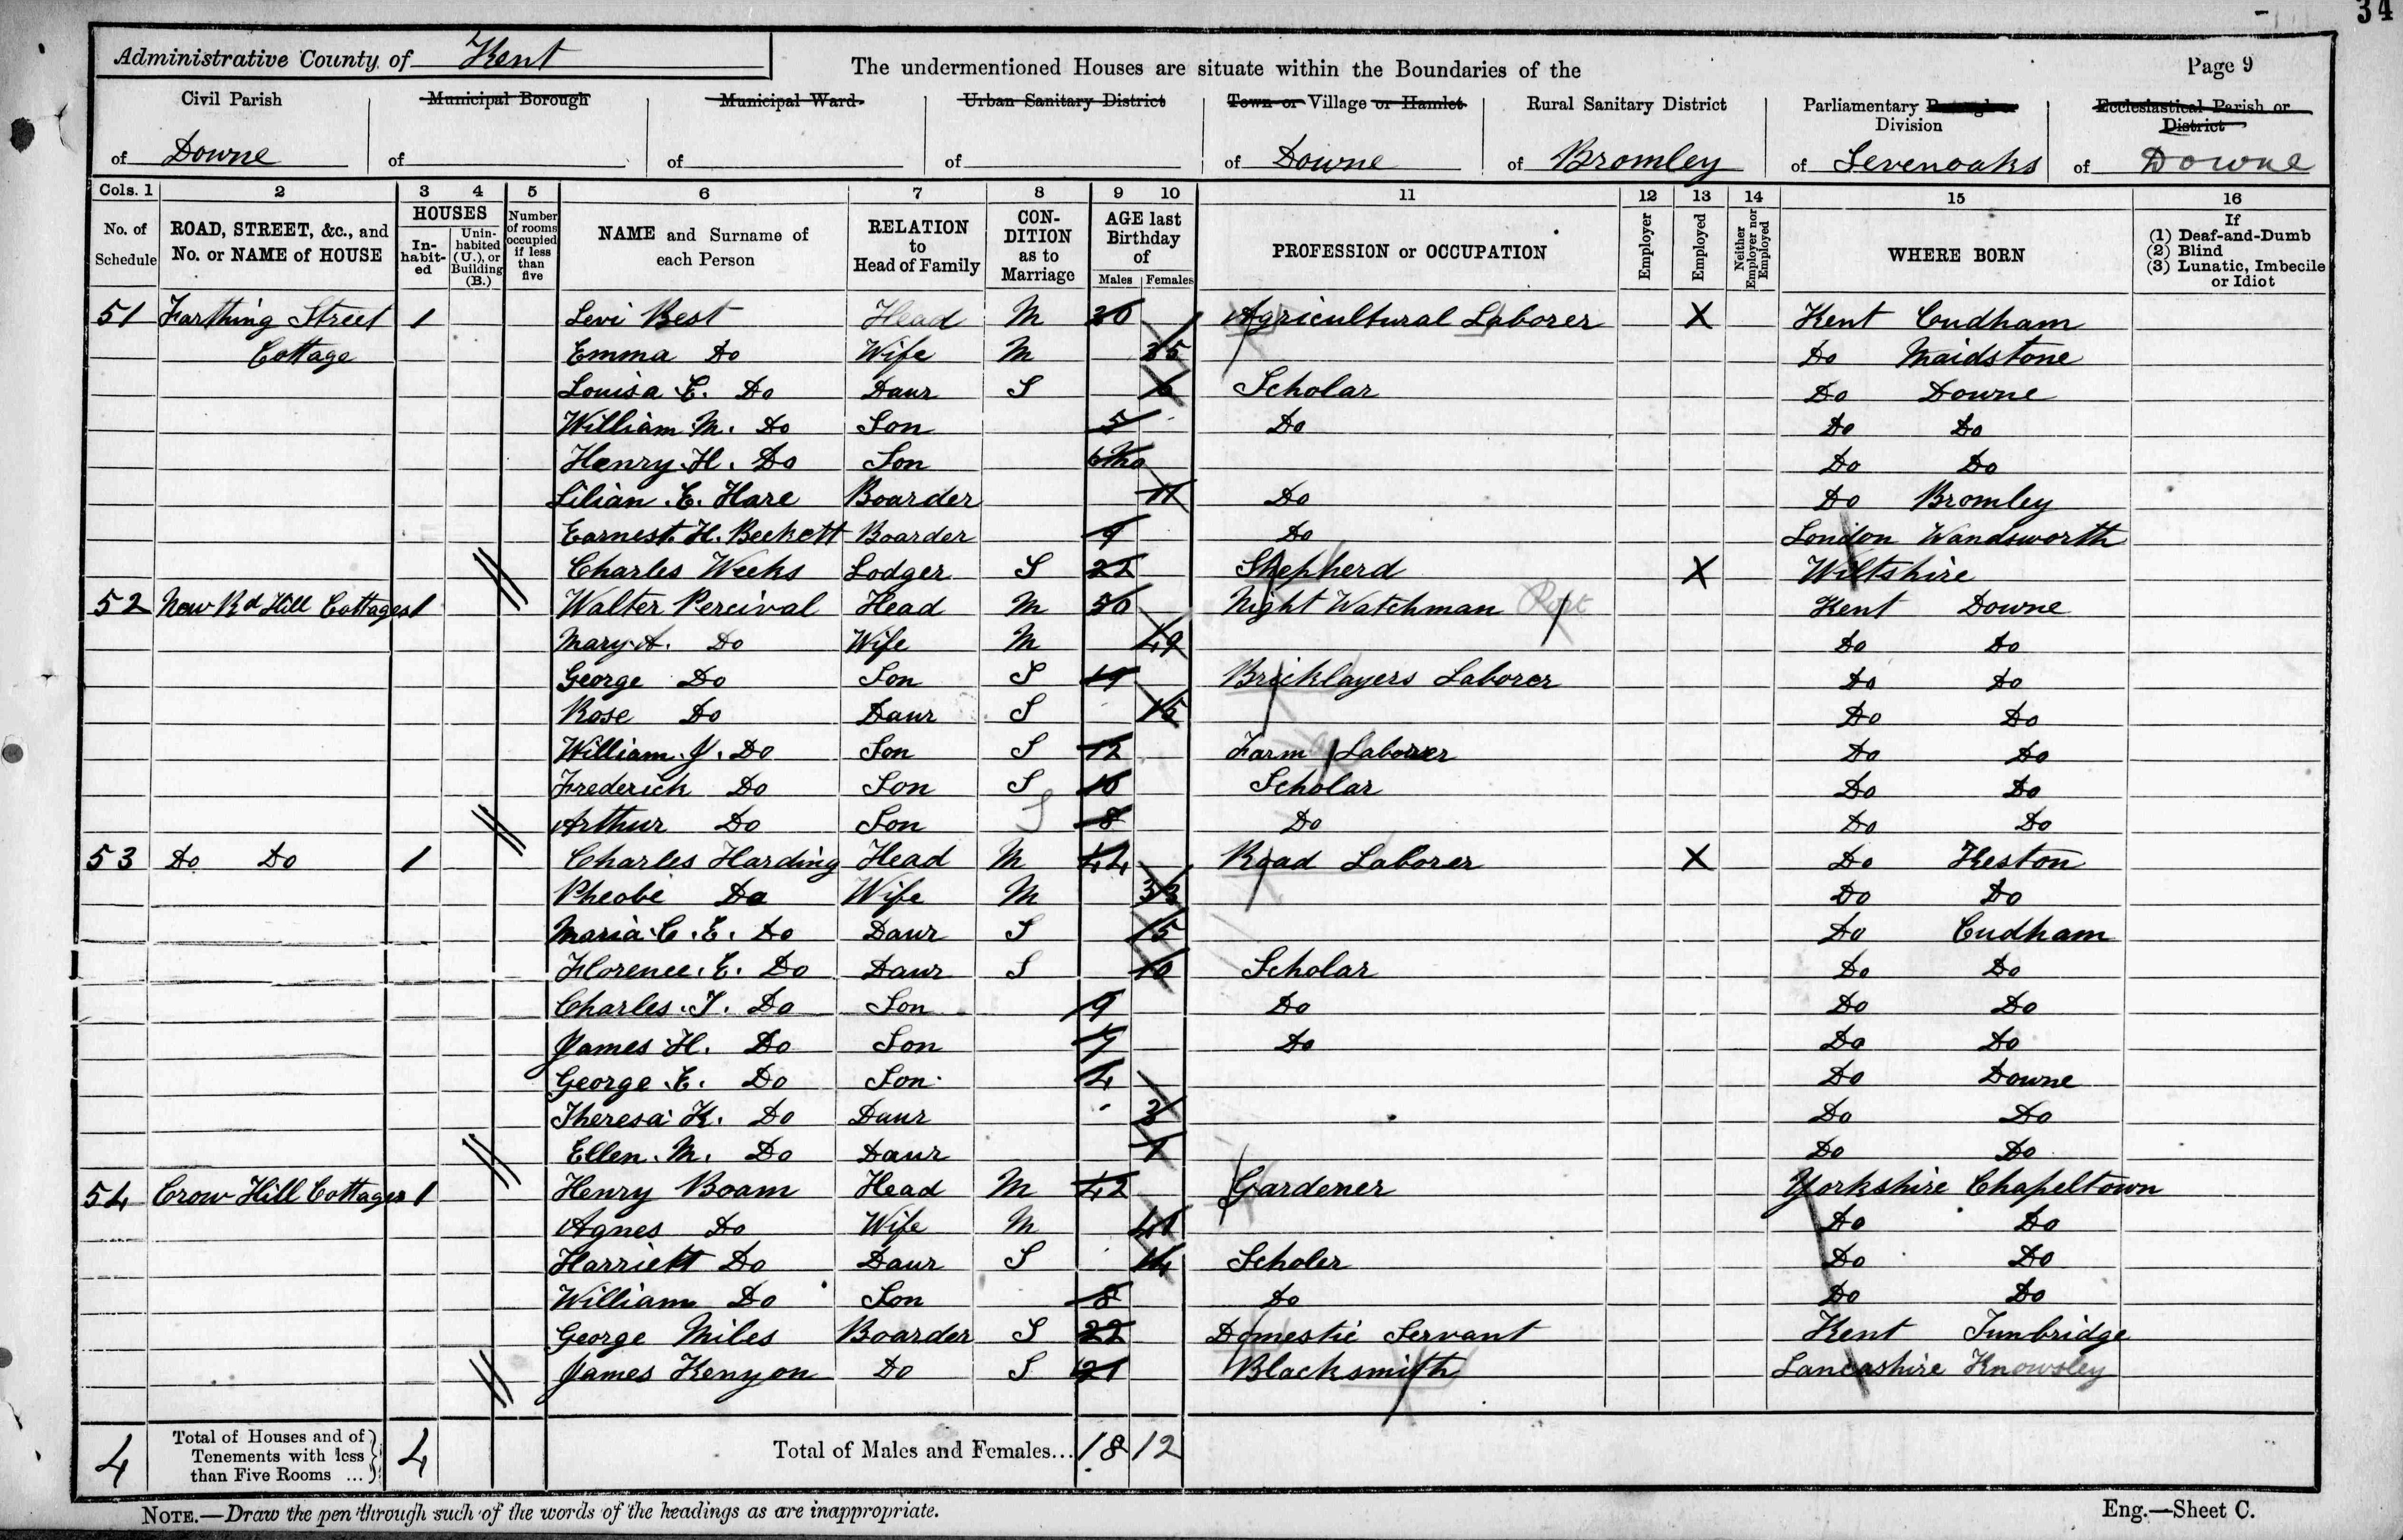 34
Administrative County of Kent
The undermentioned Houses are situate within the Boundaries of the
Page 9
Civil Parish of Downe
Municipal Borough of
Municipal Ward of
Urban Sanitary District of
Town or Village or Hamlet of Downe
Rural Sanitary District of Bromley
Parliamentary Borough or Division of Sevenoaks
Ecclesiastical Parish or District of Downe
Cols. 1 2 3 4 5 6 7 8 9 10 11 12 13 14 15 16
No. of Schedule
ROAD, STREET, &c., and No. or NAME of HOUSE
HOUSES
In-habit-ed
Unin-habited (U.), or Building (B.)
Number of rooms occupied if less than five
NAME and Surname of each Person
RELATION to Head of Family
CON-DITION as to Marriage
AGE last Birthday of
Males Females
PROFESSION or OCCUPATION
Employer
Employed
Neither Employer nor Employed
WHERE BORN
If (1) Deaf-and-Dumb (2) Blind (3) Lunatic, Imbecile or Idiot
51 Farthing Street 1 Levi Best Head M Agricultural Laborer X Kent Cudham
Cottage Emma Do Wife M 35 Do Maidstone
Louisa E. Do Daur S 6 Scholar Do Downe
William M. Do Son 5 Do Do Do
Henry H. Do Son 6Mo Do Do
Lilian E. Hare Boarder 11 Do Do Bromley
Earnest H. Beckett Boarder 9 Do London Wandsworth
Charles Weeks Lodger S 22 Shepherd X Wiltshire
52 New Rd Hill Cottages 1 Walter Percival Head M 50 Night Watchman Kent Downe
Mary A. Do Wife M 49 Do Do
George Do Son S 19 Bricklayers Laborer Do Do
Rose Do Daur S 15 Do Do
William J. Do Son S 12 Farm Laborer Do Do
Frederick Do Son S 10 Scholar Do Do
Arthur Do Son S 8 Do Do Do
53 Do Do 1 Charles Harding Head M 44 Road Laborer X Do Keston
Pheobe Do Wife M 33 Do Do
Maria C. E. Do Daur S 15 Do Cudham
Florence. E. Do Daur S 10 Scholar Do Do
Charles. T. Do Son 9 Do Do Do
James H. Do Son 7 Do Do Do
George. E. Do Son 4 Do Downe
Theresa K. Do Daur Do Do
Ellen. M. Do Daur 1 Do Do
54 Crow Hill Cottages 1 Henry Boam Head M 42 Gardener Yorkshire Chapeltown
Agnes Do Wife M 41 Do Do
Harriett Do Daur S 14 Scholer Do Do
William Do Son 8 Do Do Do
George Miles Boarder S 22 Domestic Servant Kent Tunbridge
James Kenyon Do S 21 Blacksmith Lancashire Knowsley
4 Total of Houses and of Tenements with less than Five Rooms ... 4 Total of Males and Females... 18 12
NOTE.—Draw the pen through such of the words of the headings as are inappropriate.
Eng.—Sheet C.